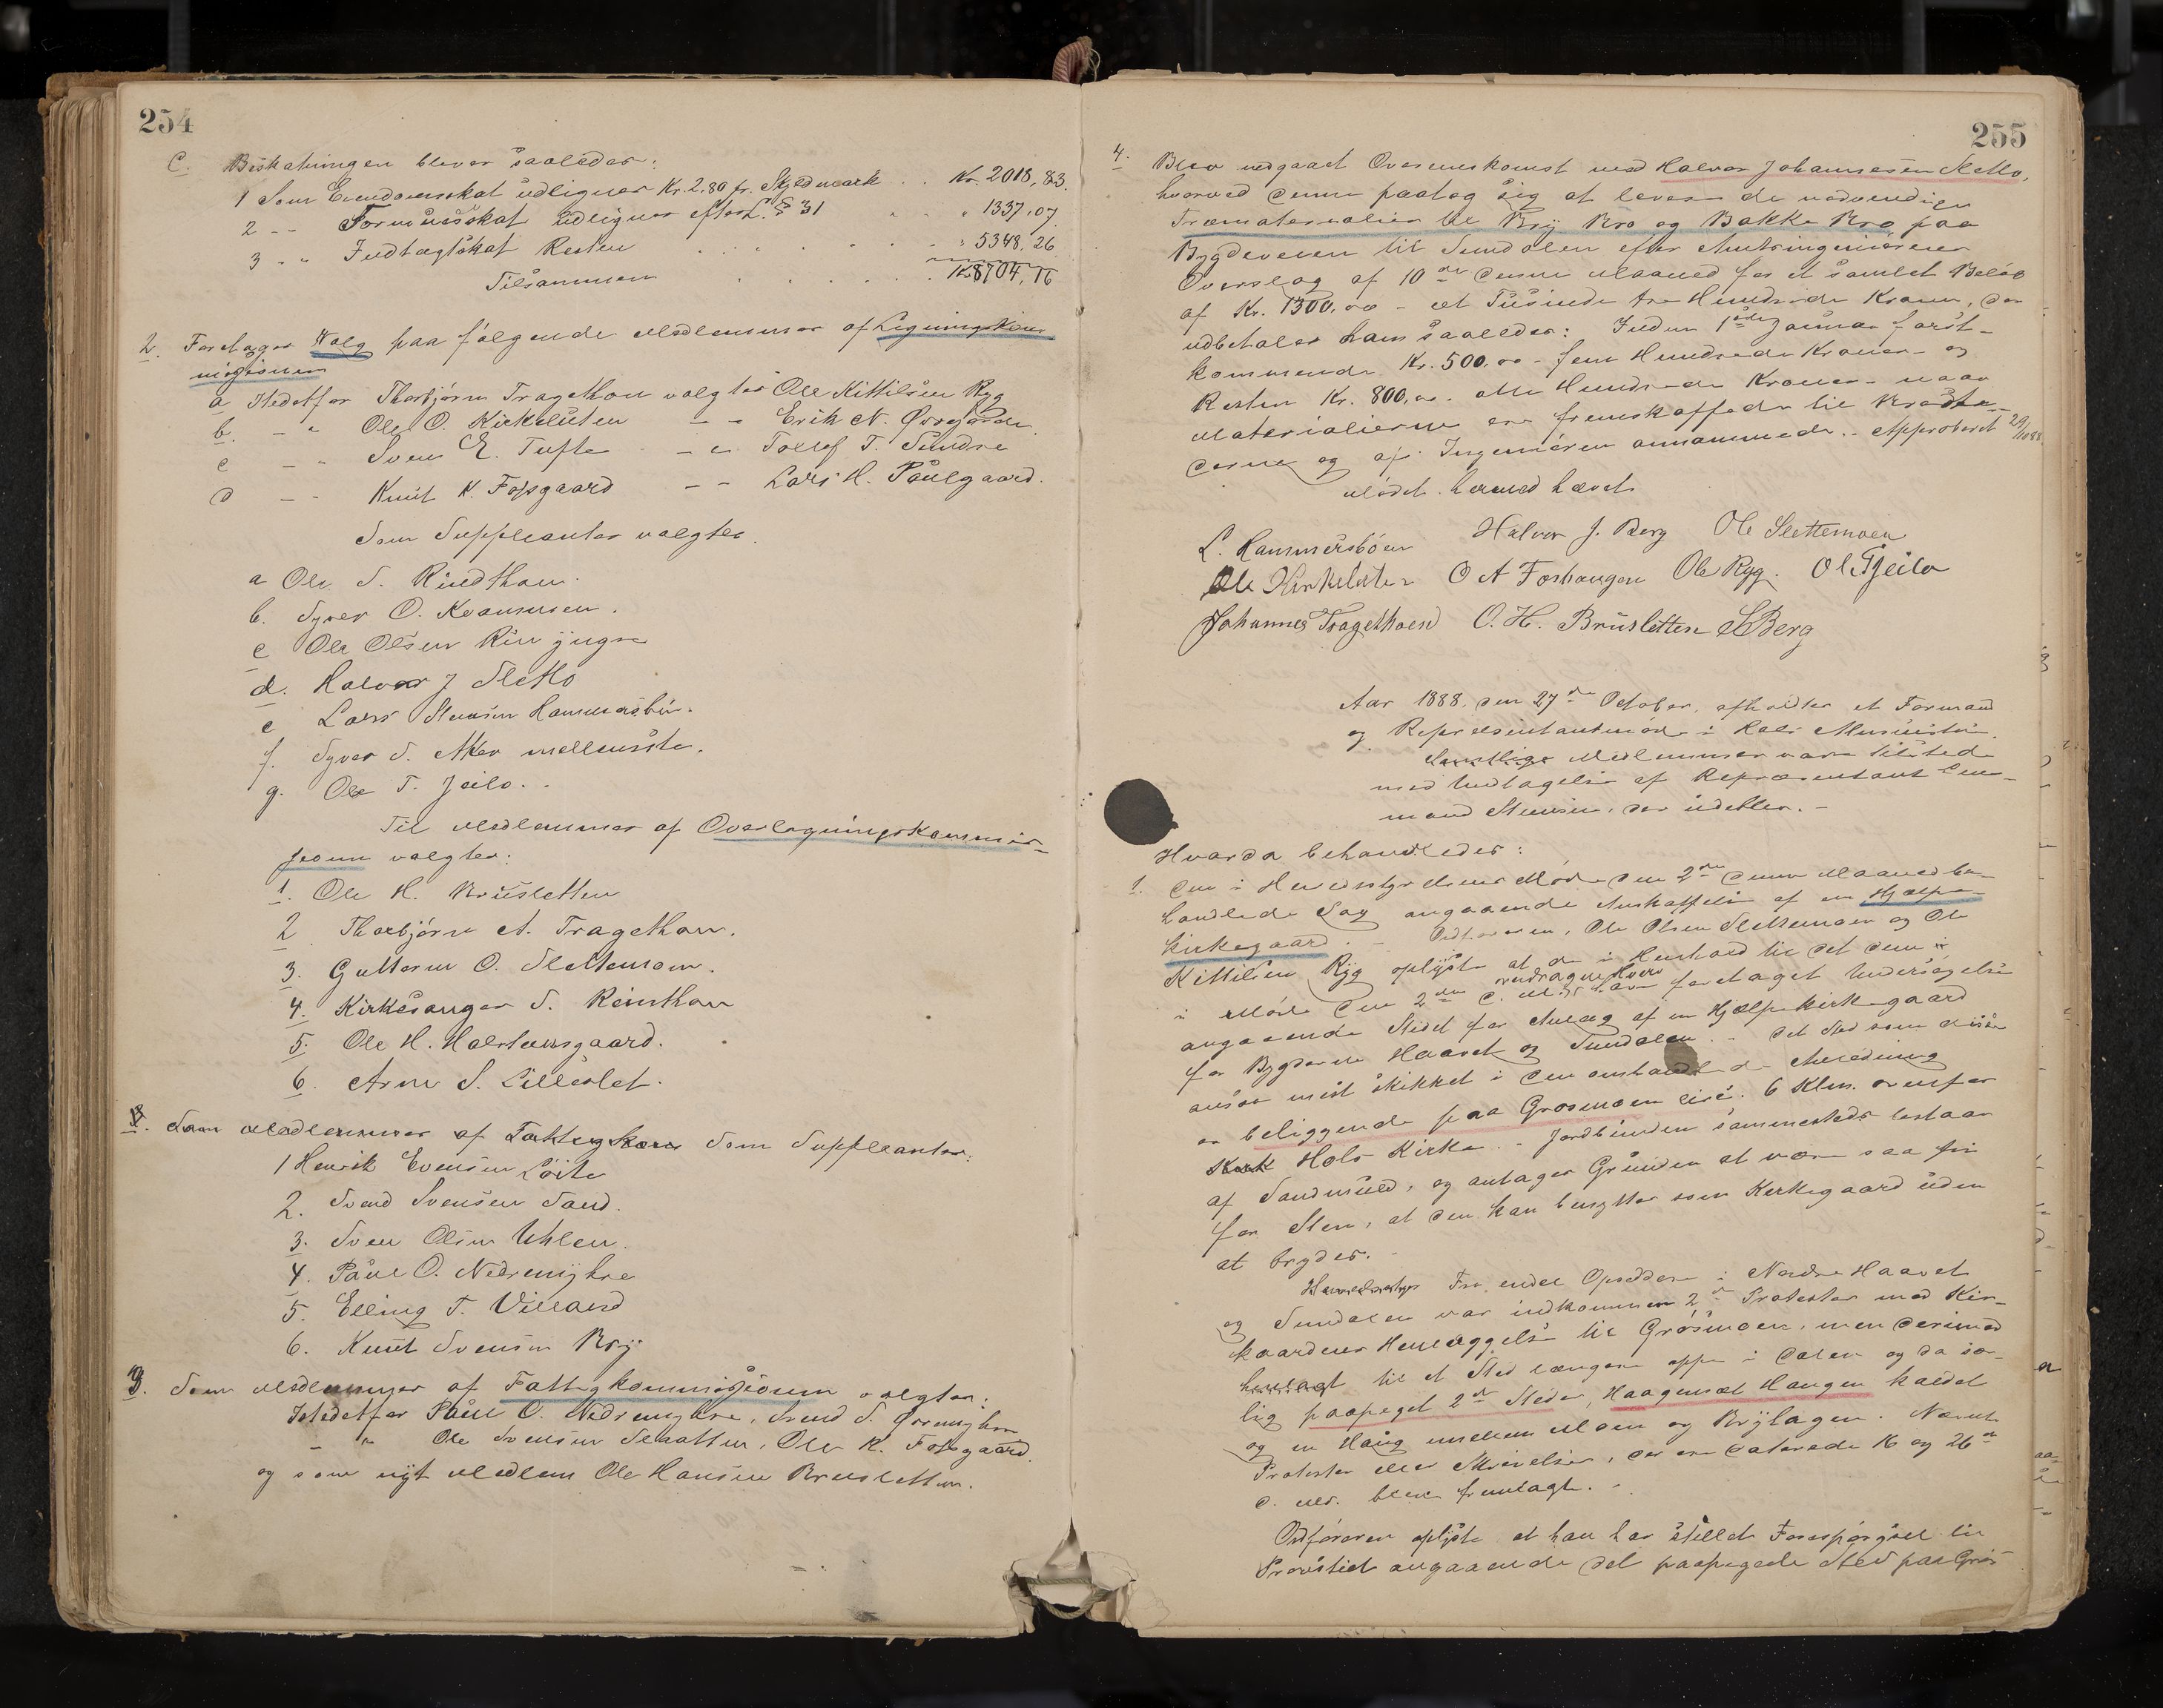 254
C. Beskatningen bliver saaledes:
1 Som Eiendomsskat udlignes Kr. 2,80 pr. Skyldmark .. Kr. 2018,83.
2 - - Formuesskat udlignes efter L. § 31 " 1337,07
3 - " Indtægtskat Resten " 5348,26
Tilsammen Kr 8704,16
2. Foretages Valg paa følgende Medlemmer af Ligningskom-
missionen
a Istedetfor Thorbjørn Tragethon valgtes Ole Kittilsen Ryg
b. - " Ole O. Kirkeluten - - Erik N. Øvregarde.
c - - Sven E. Tufte - " Tollef T. Sundre
d - - Knut K. Fossgaard - - Lars H. Paulgaard.
Som Suppleanter valgtes.
a Ole S. Rindthon.
b. Syver O. Kvammen.
c Ole Olsen Rin yngre
d. Halvor J Sletto
e Lars Stensen Hammersbøn.
f. Syver S. Aker mellemste.
g. Ole T. Jeilo..
Til Medlemmer af Overligningskommis-
sionen valgtes:
1. Ole H. Brusletten
2 Thorbjørn A. Tragethon.
3. Guttorm O. Slettemoen.
4. Kirkesanger S. Reinthon
5. Ole H. Holstensgaard.
6. Arne S. Lilleslet.
Som Medlemmer af Fattigkom Som Suppleanter:
1 Henrik Evensen Løite
2. Svend Svensen Sand.
3. Sven Olsen Uhlen.
4. Paul O. Nedremyhre
5. Elling T. Villand
6. Knut Svensen Bry
3. Som Medlemmer af Fattigkommissionen valgtes:
Istedetfor Paul O. Nedremyhre, Svend S. Øvremyhre
- " Ole Svensen Skaatten, Ole K. Fossgaard.
og som nyt Medlem Ole Hansen Brusletten.
255
4. Blev indgaaet Overenskomst med Halvor Johannesen Sletto,
hvorved denne paatog sig at levere de nødvendige
Træmaterialier til Bry Bro og Bakke Bro paa
Bygdeveien til Sundalen efter Amtsingeniørens
Overslag af 10de denne Maaned for et samlet Beløb
af Kr. 1300,00 - et Tusinde tre Hundrede Kroner, der
udbetales ham saaledes: Inden 1ste Januar først-
kommende Kr. 500,00 - fem Hundrede Kroner - og
Resten Kr. 800,00. otte Hundrede Kroner - naar
Materialierne ere fremskaffede til Broste-
derne og af Ingeniøren annammede. - Approberet 29/10 88.
Mødet hermed hævet
L. Hammersbøen Halvor J. Berg Ole Slettemoen
Ole Kirkeluten O A Foshaugen Ole Ryg. Ol T Jeilo
Johannes Tragethoen O. H. Brusletten S Berg
Aar 1888, den 27de October, afholdtes et Formand
og Repræsentantmøde i Hols
Samtlige Medlemmer vare tilstede
med Undtagelse af Repræsentant Lens-
mand Stensen, der udeblev. -
Hvorda behandledes:
1. Den i Herredsstyrelsens Møde den 2den denne Maaned be-
handlede Sag angaaende Anskaffelse af en Hjælpe-
kirkegaard. - Ordføreren, Ole Olsen Slettemoen og Ole
Kittilsen Ryg oplyste at de i Henhold til det dem
i Møde den 2den d. M. overdragne Hverv have foretaget Undersøgelse
angaaende Stedet for Anlæg af en Hjælpekirkegaard
for Bygderne Haavet og Sundalen. - Det Sted som disse
ansaa mest skikket i den omhandlede Anledning
er beliggende paa Grøsmoen circa 6 Klm. ovenfor
Hols Kirke. - Jordbunden sammesteds bestaar
af Sandmuld, og antages Grunden at være saa fri
for Sten, at den kan benyttes som Kirkegaard uden
at brydes. -
Fra endel Opsiddere i Nordre Haavet
og Sundalen var indkommen 2de Protester mod Kir-
kegaardens Henlæggelse til Grøsmoen, men derimod
henlagt til et Sted længere oppe i Dalen og da sær-
lig paapeget 2de Steder, Haagenset Haugen kaldet
og en Haug mellem Moen og Brylagen. Nævnte
Protester eller Skrivelser, der ere daterede 16 og 26de
d. Md. blev fremlagt. -
Ordføreren oplyste at han har stillet Forespørgsel til
Provstiet angaaende det paapegede Sted paa Grøs-